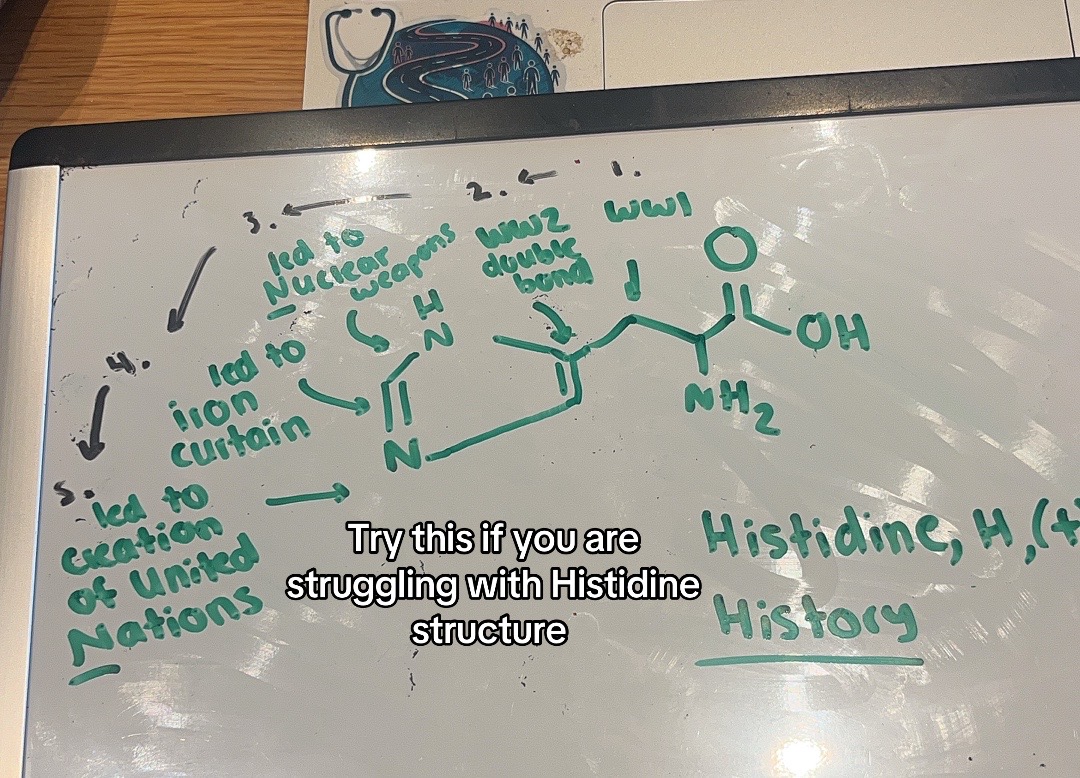 1.
WW1
2.
WW2
double
bond
3.
led to
Nuclear
weapons
4.
led to
iron
curtain
5.
led to
creation
of United
Nations
H
N
N
O
OH
NH2
Histidine, H, (+
History
Try this if you are
struggling with Histidine
structure